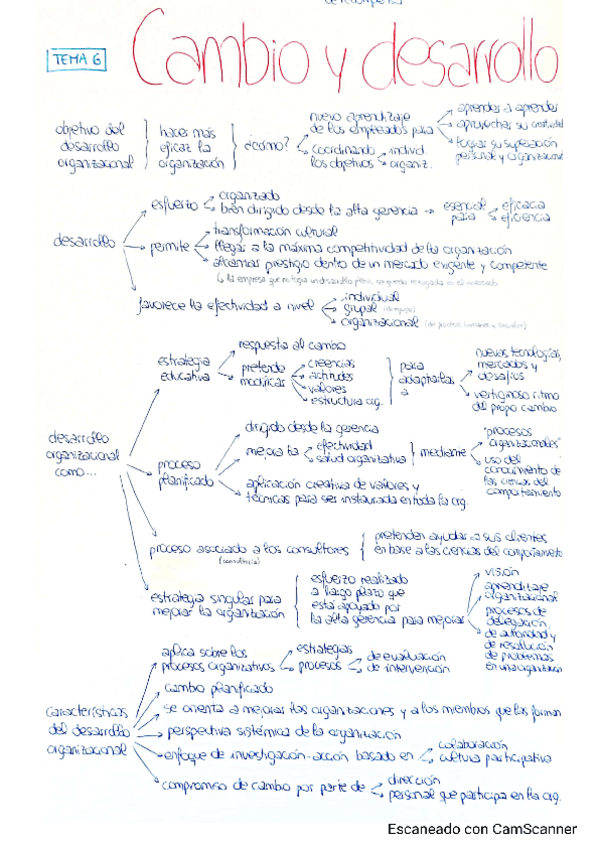 TEMA 6
Cambio y desarrollo
objetivo del desarrollo organizacional
hacer más eficaz la organización
¿cómo?
nuevo aprendizaje de los empleados para
aprender a aprender
aprovechar su creatividad
lograr su superación personal y organizacional
coordinando los objetivos
individ.
organiz.
desarrollo
esfuerzo
organizado
bien dirigido desde la alta gerencia → esencial para
eficacia
eficiencia
permite
transformación cultural
llegar a la máxima competitividad de la organización
alcanzar prestigio dentro de un mercado exigente y competente
favorece la efectividad a nivel
individual
grupal
organizacional
desarrollo organizacional como...
estrategia educativa
respuesta al cambio
pretende modificar
creencias
actitudes
valores
estructura org.
para adaptarlas a
nuevas tecnologías, mercados y desafíos
vertiginoso ritmo del propio cambio
proceso planificado
dirigido desde la gerencia
mejora la
efectividad
salud organizativa
mediante
"procesos organizacionales"
uso del conocimiento de las ciencias del comportamiento
aplicación creativa de valores y
técnicas para ser instaurada en toda la org.
proceso asociado a los consultores
(consultoría)
pretenden ayudar a sus clientes
en base a las ciencias del comportamiento
estrategia singular para
mejorar la organización
esfuerzo realizado
a largo plazo que
está apoyado por
la alta gerencia para mejorar
visión
aprendizaje organizacional
procesos de delegación
de autoridad y
de resolución
de problemas
en una organización
características del desarrollo organizacional
aplica sobre los
procesos organizativos
estrategias
procesos
de evaluación
de intervención
cambio planificado
se orienta a mejorar las organizaciones y a los miembros que las forman
perspectiva sistémica de la organización
enfoque de investigación-acción basado en
colaboración
cultura participativa
compromiso de cambio por parte de
dirección
personal que participa en la org.
Escaneado con CamScanner